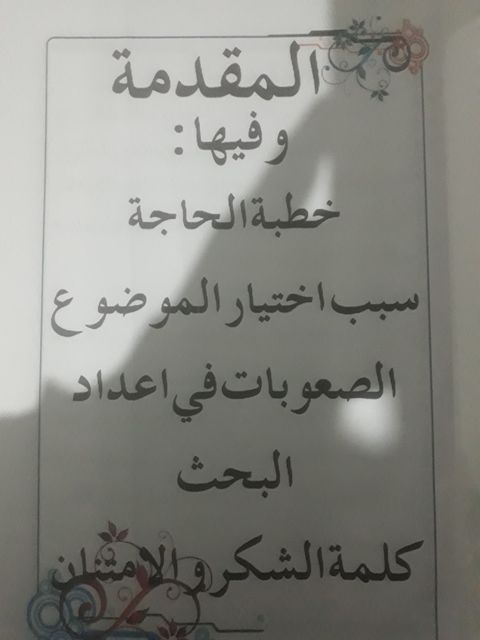 المقدمة
وفيها:
خطبة الحاجة
سبب اختيار الموضوع
الصعوبات في اعداد
البحث
كلمة الشكر والامتنان